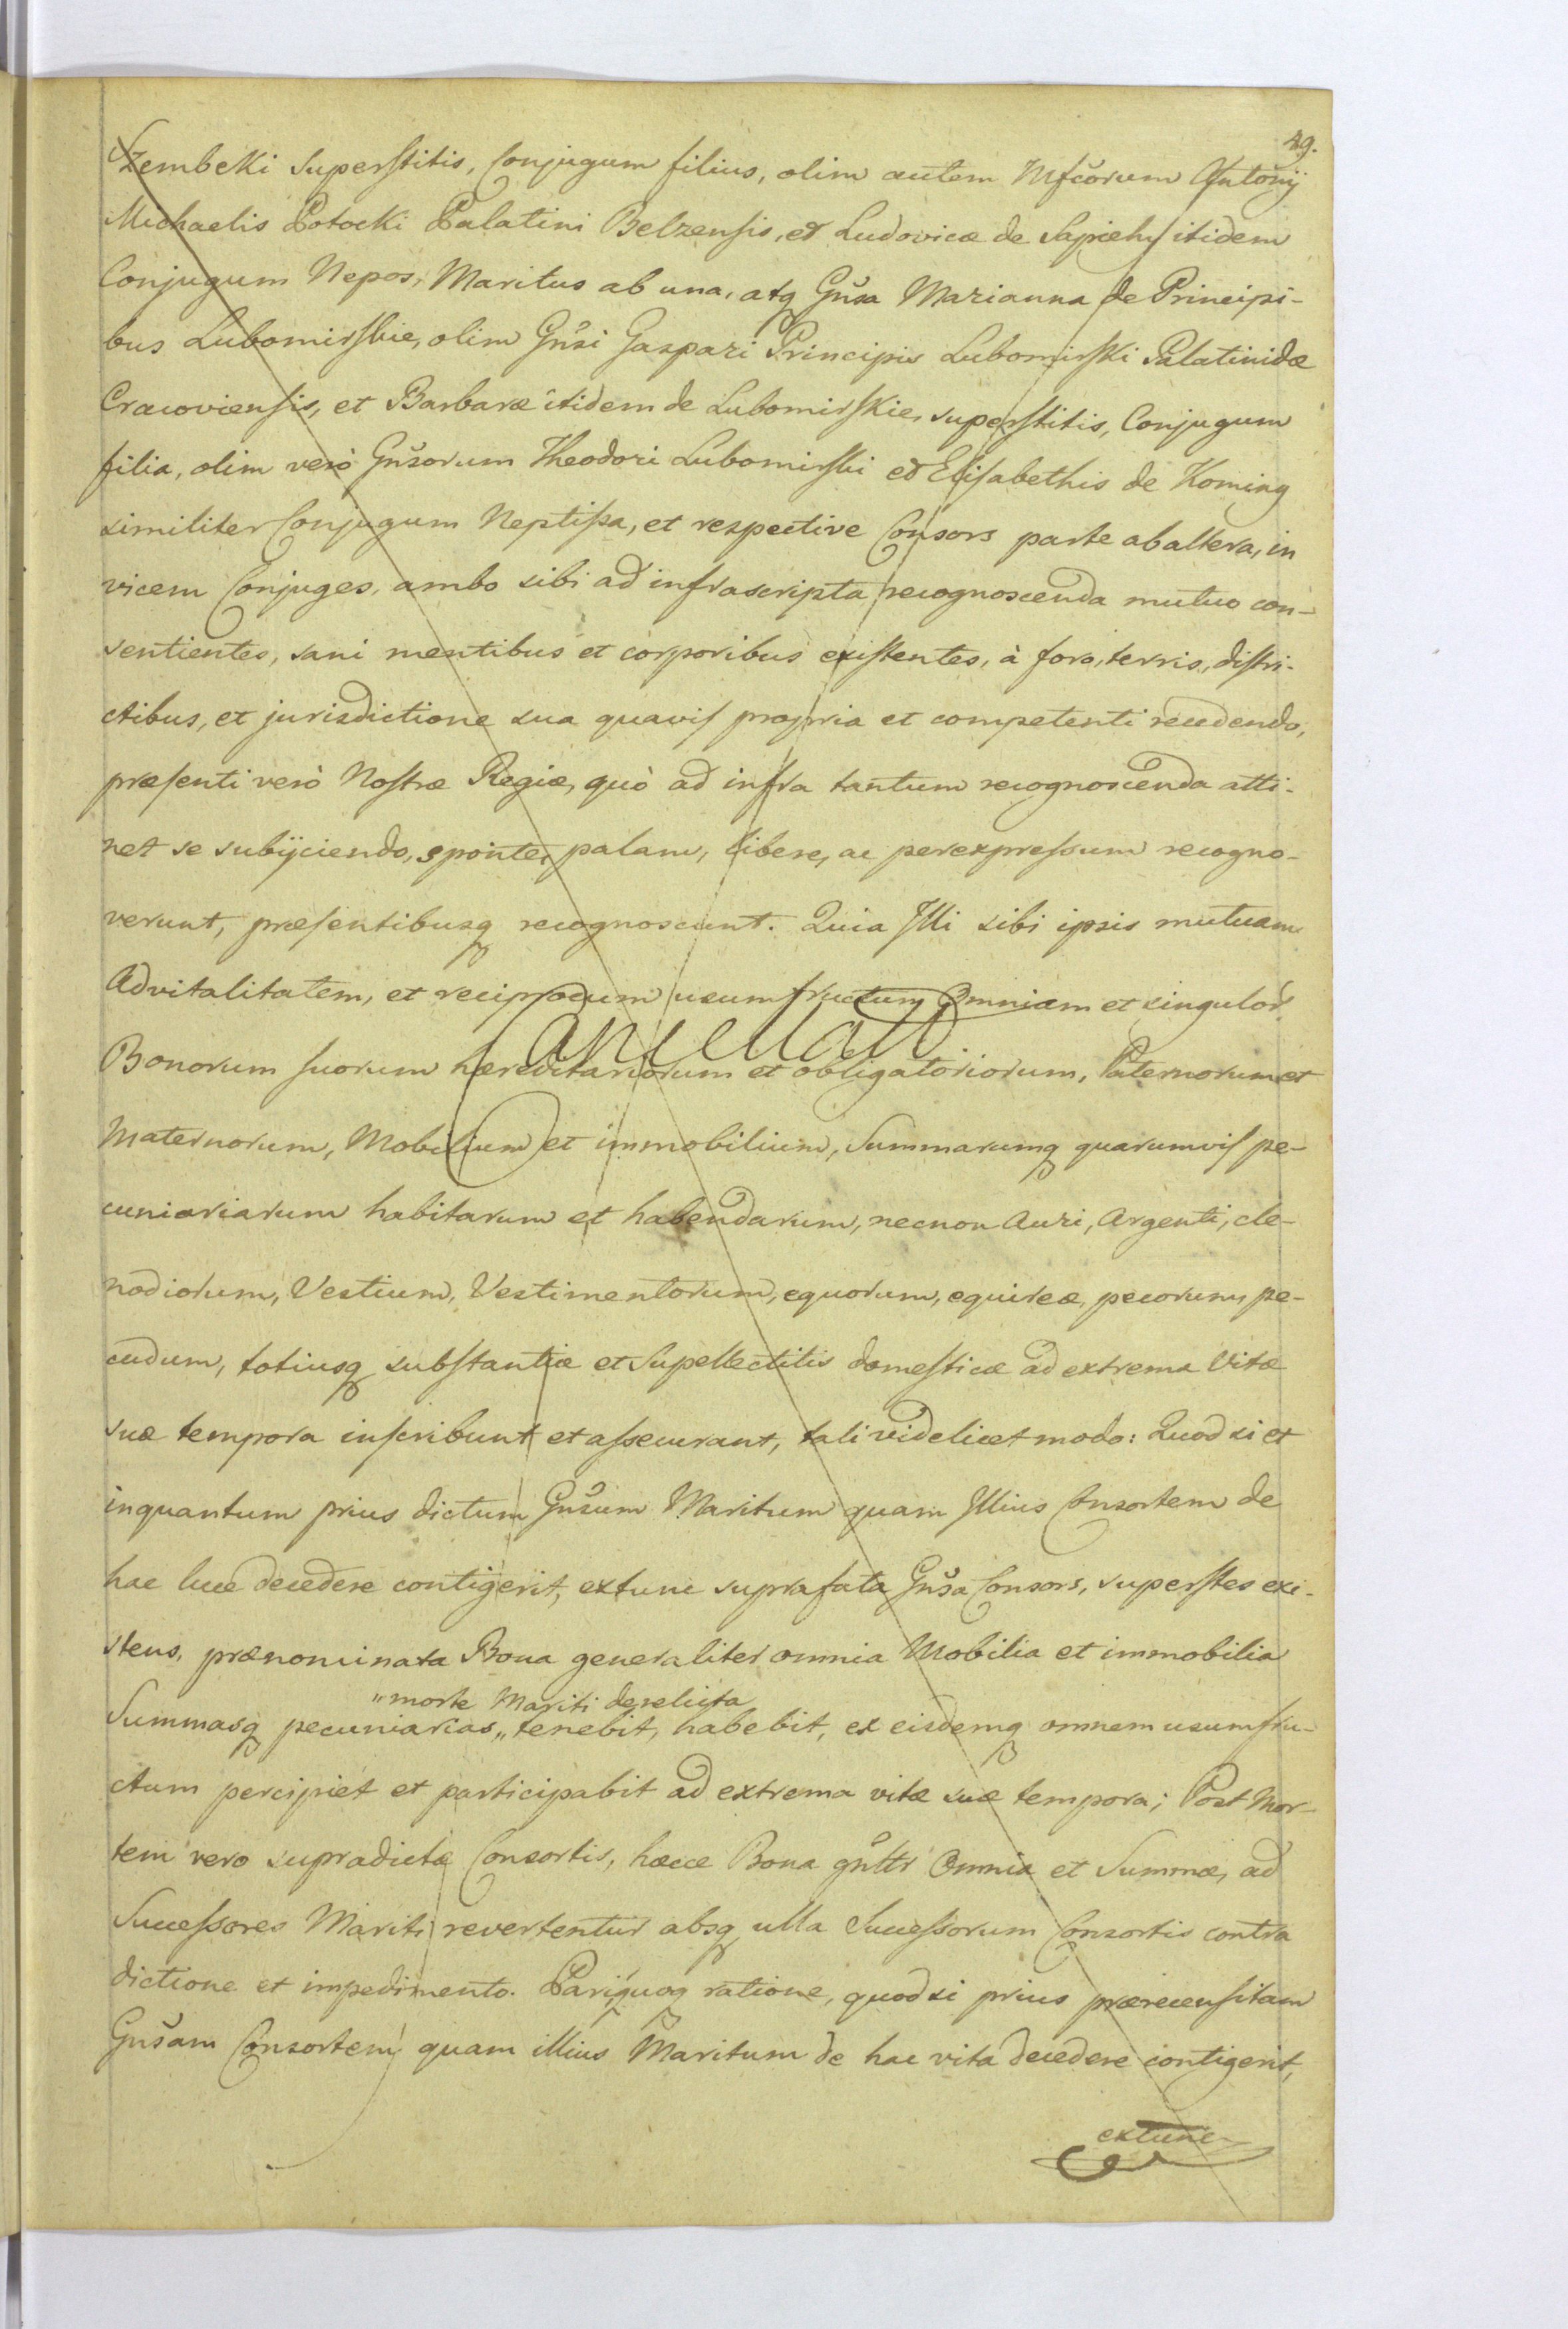 49.
Szembeki Superstitis, Conjugum filius, olim autem Mfcorum Antonij
Michaelis Potocki Palatini Belzensis, et Ludovicæ de Sapiehy itidem
Conjugum Nepos, Maritus ab una, atq Gnsa Marianna de Principi-
bus Lubomirskie, olim Gnsi Gaspari Principis Lubomirski Palatinidæ
Cracoviensis, et Barbaræ itidem de Lubomirskie, superstitis, Conjugum
filia, olim verò Gnsorum Theodori Lubomirski et Elisabethis de Koming
similiter Conjugum Neptissa, et respective Consors parte ab altera, in
vicem Conjuges, ambo sibi ad infrascripta recognoscenda mutuo con-
sentientes, sani mentibus et corporibus existentes, à foro, terris, distri-
ctibus, et jurisdictione sua quavis propria et competenti recedendo,
præsenti verò Nostræ Regiæ, quò ad infra tantum recognoscenda atti-
net se subijciendo, sponte, palam, libere, ac perexpressum recogno-
verunt, præsentibusq recognoscunt. Quia Illi sibi ipsis mutuam
Advitalitatem, et reciprocum usumfructum Omniam et singulor
Cancellatd
Bonorum suorum hæreditariorum et obligatoriorum, Paternorum et
Maternorum, Mobilium et immobilium, Summarumq quarumvis pe-
cuniariarum habitarum et habendarum, necnon Auri, Argenti, cle-
nodiorum, Vestium, Vestimentorum, equorum, equireæ, pecorum, pe-
cudum, totiusq substantiæ et Supellectilis domesticæ ad extrema Vitæ
suæ tempora inscribunt et assecurant, tali videlicet modo: Quod si et
inquantum prius dictum Gnsum Maritum quam Illius Consortem de
hac luce decedere contigerit, extunc suprafata Gnsa Consors, superstes exi-
stens, prænominata Bona generaliter omnia Mobilia et immobilia
„morte Mariti derelicta
Summasq pecuniarias„ tenebit, habebit, ex eisdemq omnem usumfru-
ctum percipiet et participabit ad extrema vitæ suæ tempora; Post Mor-
tem vero supradictæ Consortis, hæcce Bona gnltr Omnia et Summæ, ad
Successores Mariti revertentur absq ulla Successorum Consortis contra
dictione et impedimento. Pariquoq ratione, quod si prius prærecensitam
Gnsam Consortem quam illius Maritum de hac vita decedere contigerit,
extunc